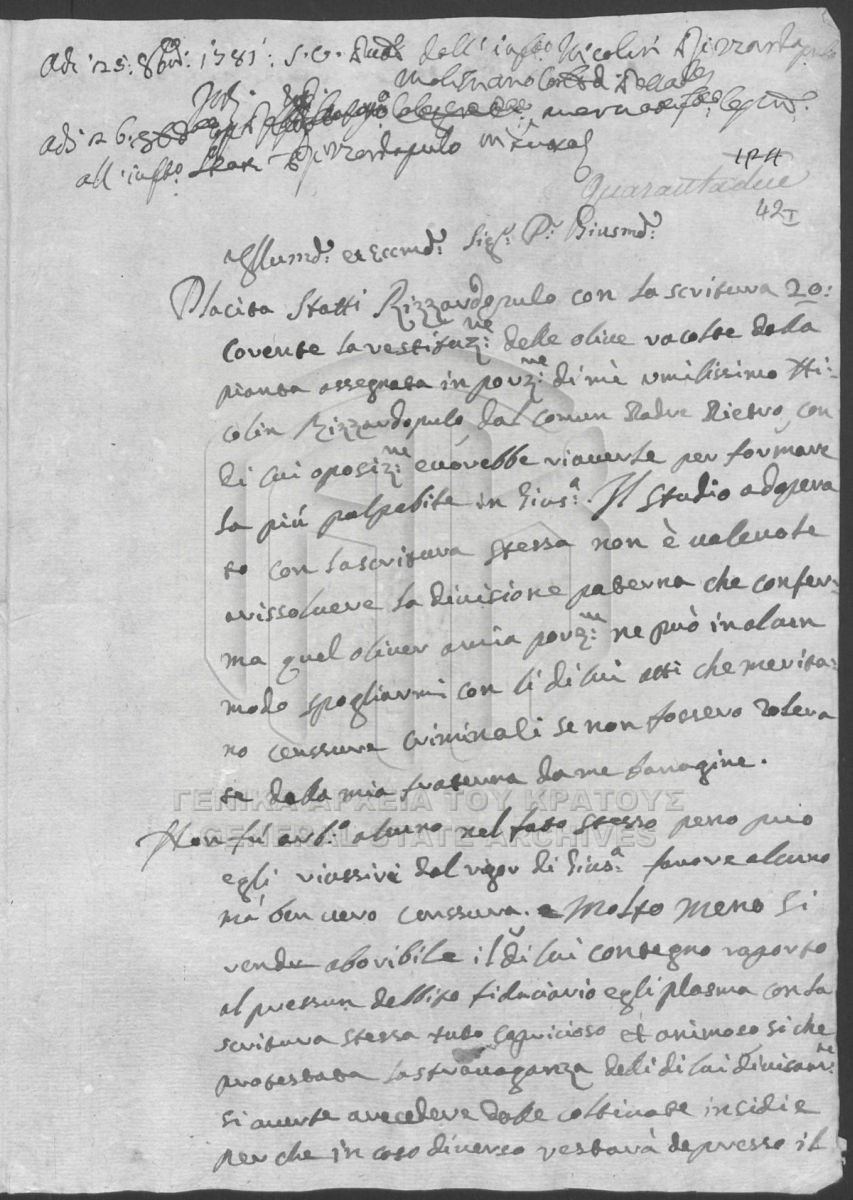 Adi 25: 8bre: 1781: S. G. dell' infto Nicolin Rizzardopulo
Molignano
adi 26: 8bre
all' infto: Stati Rizzardopulo
124
Quarantadue
42
Illumo: et Eccmo: Sigr: Pr: Giusmo:
Placita Statti Rizzardopulo con la scritura 20:
corente la restituzne: delle olive racolte dalla
pianta assegnata in porzne: di mè umilissimo Ni-
colin Rizzardopulo dal Comun Padre Pietro, con
di lui oposizne: e vorebbe riaverte per formare
la più palpabile in Giusa. Il studio adopera
to con la scritura stessa non è valevole
a rissolvere la divisione paterna che confer-
ma quel oliver a mia porzne: ne può in alcun
modo spogliarmi con li di lui atti che merita-
no censsure Criminali se non fossero tolera
te dalla mia fraterna da me
Non fu arba: alcuno nel fato stesso pero può
egli riussire dal rigor di Giusa favore alcuno
mà ben vero censsura. e Molto meno si
rende aboribile il di lui contegno raporto
al pressun debbito fiduciario egli plasma con la
scritura stessa tuto capricioso et animoso si che
protestata la stravaganza deli di lui divisamne:
si averte a recedere dalle coltivate insidie
per che in caso diverso restarà depresso il
ΓΕΝΙΚΑ ΑΡΧΕΙΑ ΤΟΥ ΚΡΑΤΟΥΣ
GENERAL STATE ARCHIVES